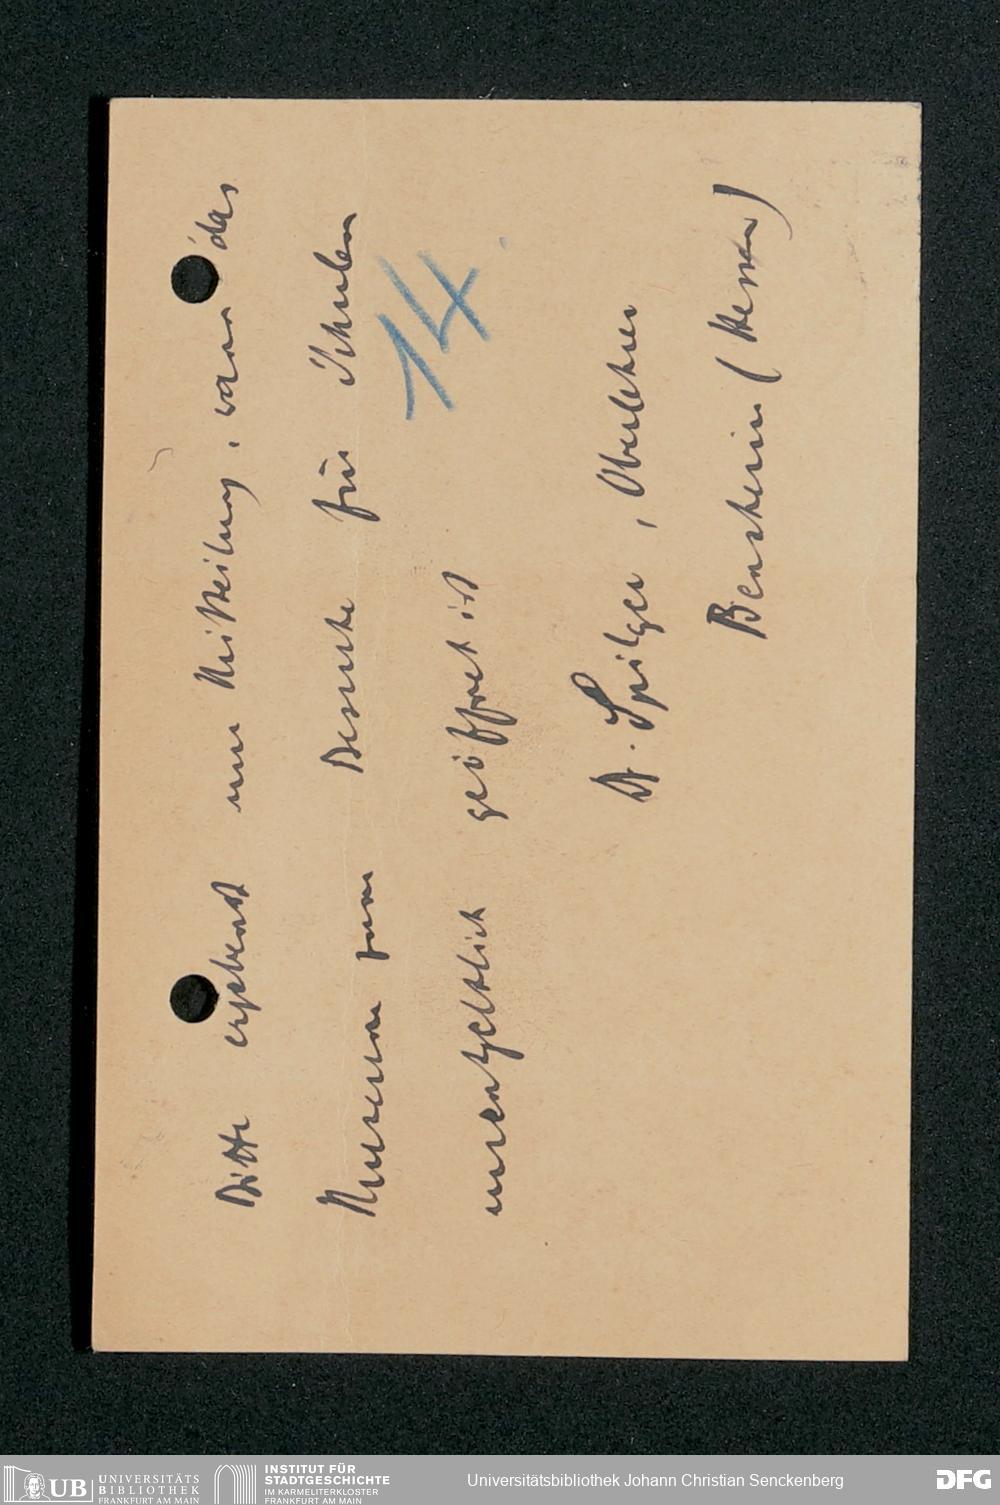 Bitte ergebenst um Mitteilung, wann das
Museum zum Besuche für Schulen
unentgeltlich geöffnet ist
14
Dr. Spilger, Oberlehrer
Bensheim (Hessen)
UB UNIVERSITÄTS
BIBLIOTHEK
FRANKFURT AM MAIN
INSTITUT FÜR
STADTGESCHICHTE
IM KARMELITERKLOSTER
FRANKFURT AM MAIN
Universitätsbibliothek Johann Christian Senckenberg
DFG